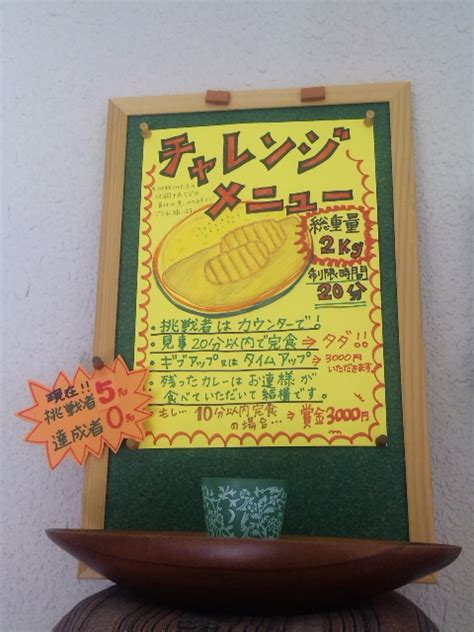 チャレンジ
メニュー
総重量
2Kg
制限時間
20分
・挑戦者はカウンターで!
・見事20分以内で完食→タダ!!
・ギブアップ又はタイムアップ→3000円
いただきます
・残ったカレーはお連様が
食べていただいて結構です。
・もし…10分以内完食
の場合…⇒賞金3000円
現在!!
挑戦者5
達成者0